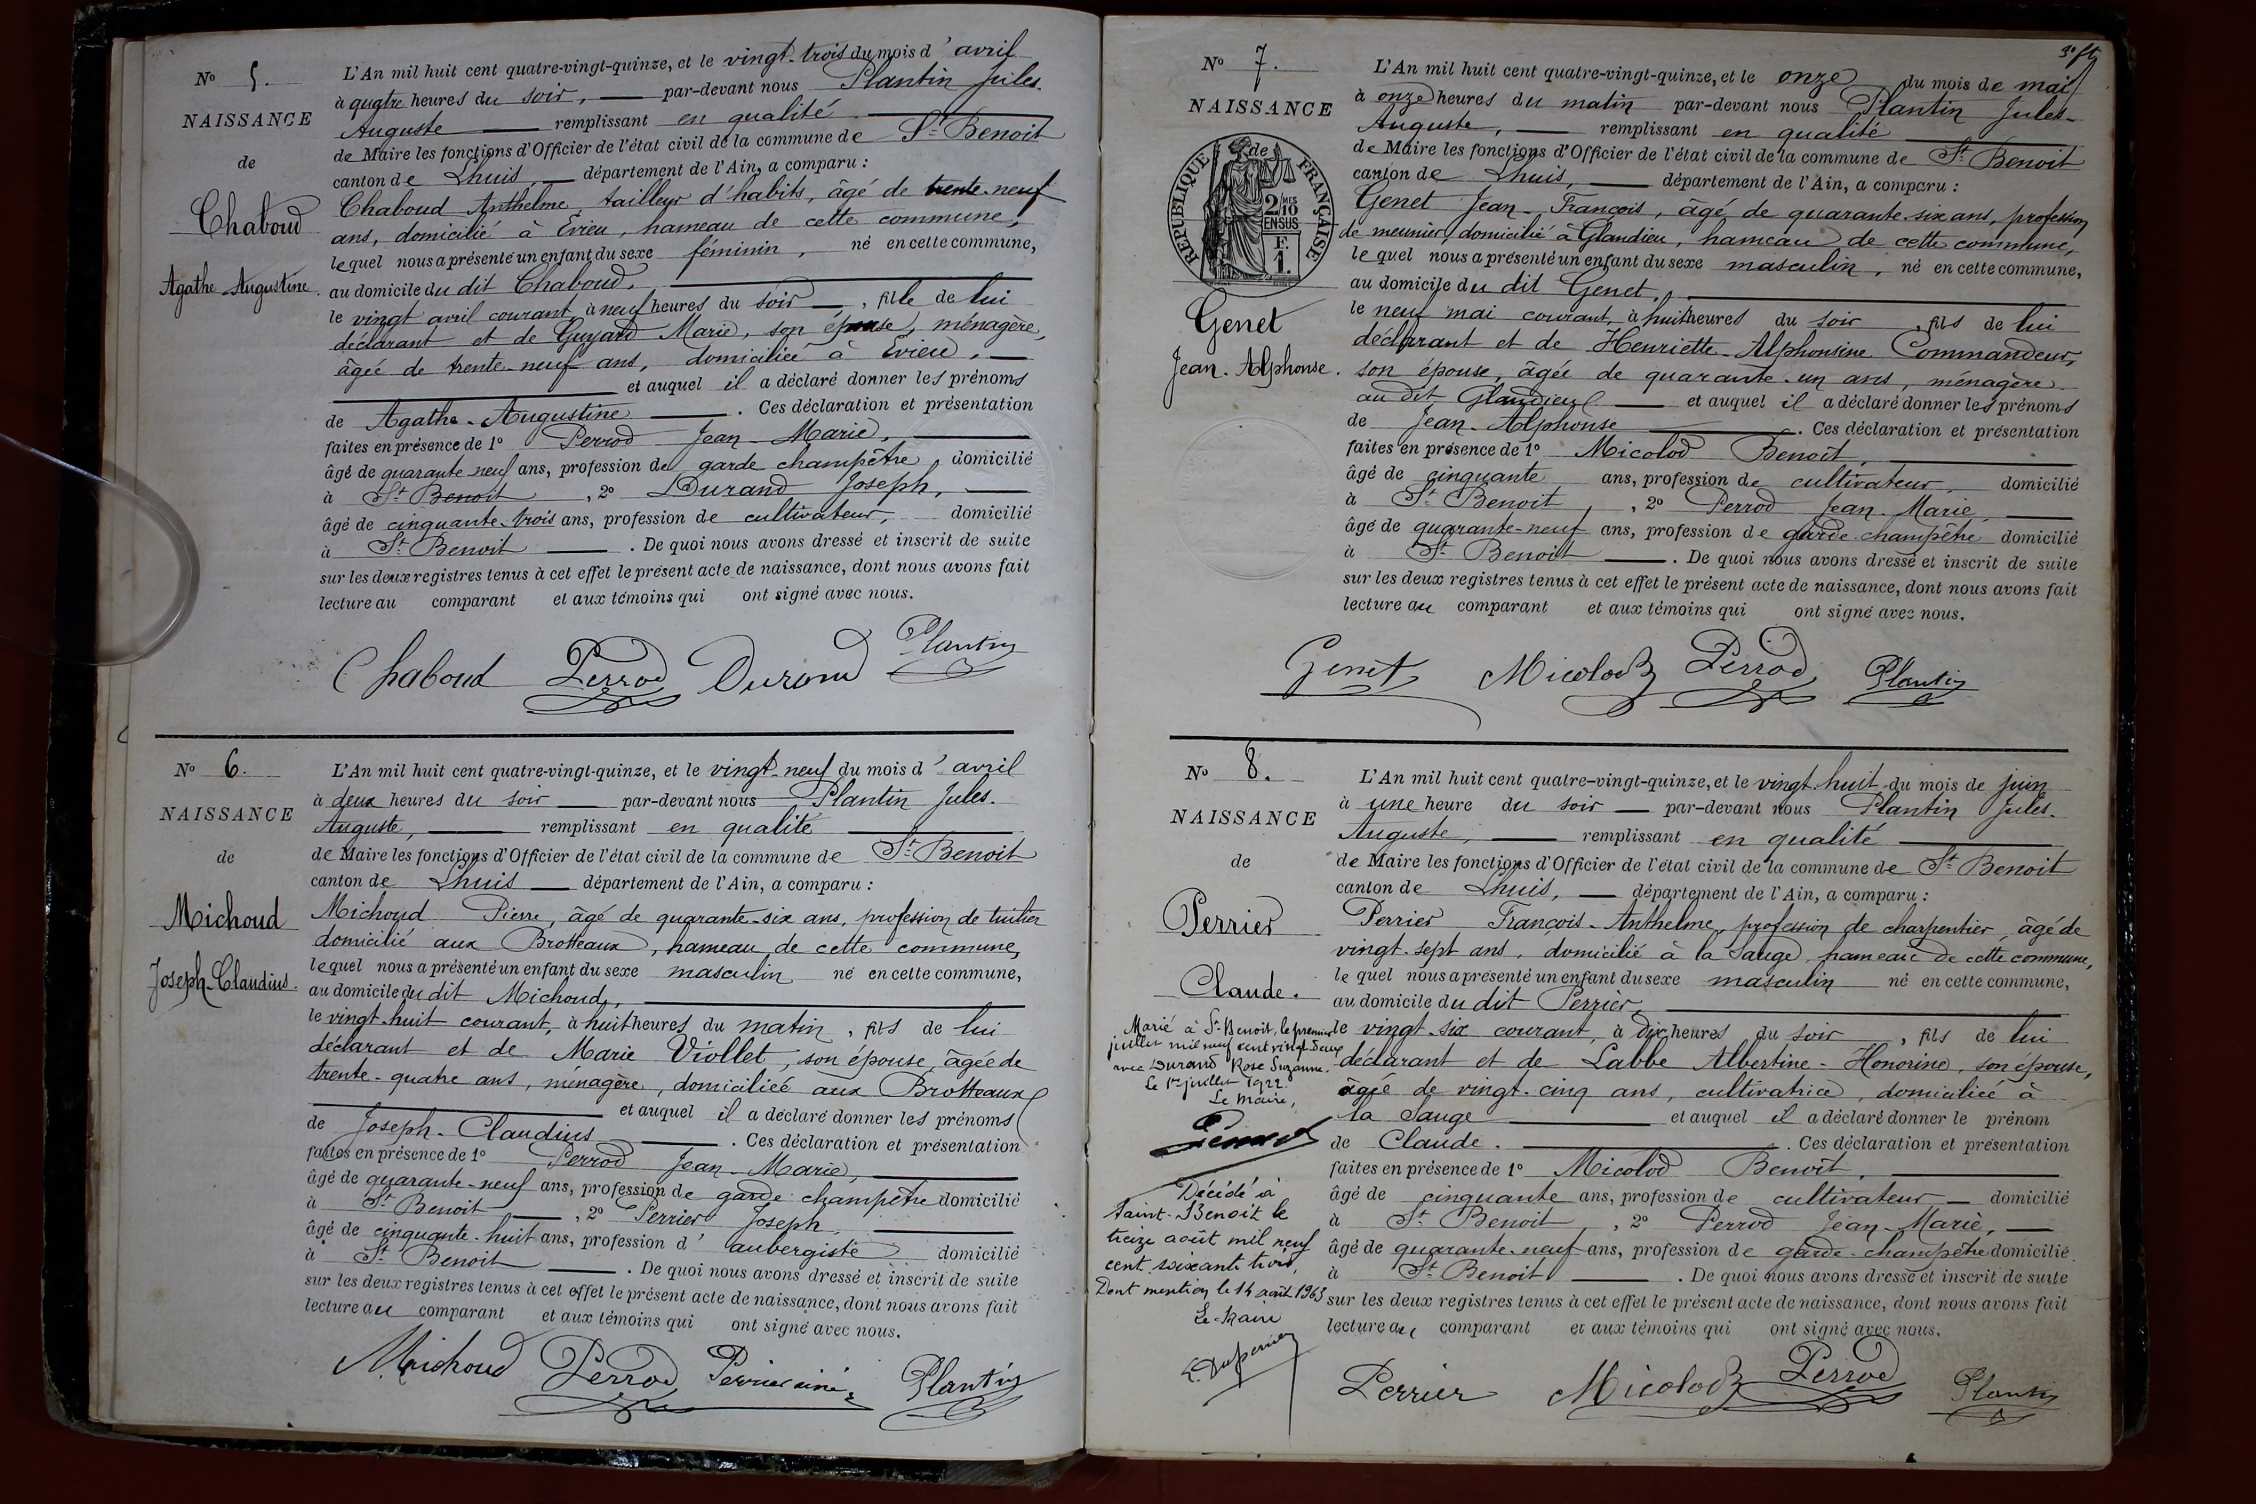 N° 5.
NAISSANCE
de
Chaboud
Agathe Augustine.
L'An mil huit cent quatre-vingt-quinze, et le vingt-trois du mois d'avril
à quatre heures du soir, par-devant nous Plantin Jules-
Auguste remplissant en qualité
de Maire les fonctions d'Officier de l'état civil de la commune de St Benoit
canton de Lhuis, département de l'Ain, a comparu :
Chaboud Anthelme, tailleur d'habits, âgé de trente-neuf
ans, domicilié à Evieu, hameau de cette commune,
lequel nous a présenté un enfant du sexe féminin, né en cette commune,
au domicile du dit Chaboud.
le vingt avril courant, à neuf heures du soir, fille de lui
déclarant et de Guyard Marie, son épouse, ménagère,
âgée de trente-neuf ans, domiciliée à Evieu.
et auquel il a déclaré donner les prénoms
de Agathe-Augustine. Ces déclaration et présentation
faites en présence de 1° Perrod Jean-Marie,
âgé de quarante neuf ans, profession de garde champêtre, domicilié
à St Benoit, 2° Durand Joseph,
âgé de cinquante-trois ans, profession de cultivateur, domicilié
à St Benoit. De quoi nous avons dressé et inscrit de suite
sur les deux registres tenus à cet effet le présent acte de naissance, dont nous avons fait
lecture au comparant et aux témoins qui ont signé avec nous.
Chaboud Perrod Durand Plantin
N° 6.
NAISSANCE
de
Michoud
Joseph-Claudius.
L'An mil huit cent quatre-vingt-quinze, et le vingt-neuf du mois d'avril
à deux heures du soir par-devant nous Plantin Jules-
Auguste, remplissant en qualité
de Maire les fonctions d'Officier de l'état civil de la commune de St Benoit
canton de Lhuis département de l'Ain, a comparu :
Michoud Pierre, âgé de quarante-six ans, profession de tuilier
domicilié aux Brotteaux, hameau de cette commune,
lequel nous a présenté un enfant du sexe masculin né en cette commune,
au domicile du dit Michoud,
le vingt-huit courant, à huit heures du matin, fils de lui
déclarant et de Marie Viollet, son épouse, âgée de
trente-quatre ans, ménagère, domiciliée aux Brotteaux
et auquel il a déclaré donner les prénoms
de Joseph-Claudius. Ces déclaration et présentation
faites en présence de 1° Perrod Jean-Marie,
âgé de quarante-neuf ans, profession de garde champêtre domicilié
à St Benoit, 2° Perrier Joseph
âgé de cinquante-huit ans, profession d'aubergiste domicilié
à St Benoit. De quoi nous avons dressé et inscrit de suite
sur les deux registres tenus à cet effet le présent acte de naissance, dont nous avons fait
lecture au comparant et aux témoins qui ont signé avec nous.
Michoud Perrod Perrier ainé Plantin
N° 7.
NAISSANCE
de
RÉPUBLIQUE FRANÇAISE
2/10 MES EN SUS
F. 1.
Genet
Jean-Alphonse.
L'An mil huit cent quatre-vingt-quinze, et le onze du mois de mai
à onze heures du matin par-devant nous Plantin Jules-
Auguste, remplissant en qualité
de Maire les fonctions d'Officier de l'état civil de la commune de St Benoit
canton de Lhuis, département de l'Ain, a comparu :
Genet Jean-François, âgé de quarante-six ans, profession
de meunier, domicilié à Glandieu, hameau de cette commune,
lequel nous a présenté un enfant du sexe masculin, né en cette commune,
au domicile du dit Genet,
le neuf mai courant, à huit heures du soir, fils de lui
déclarant et de Henriette-Alphonsine Commandeur,
son épouse, âgée de quarante-un ans, ménagère
au dit Glandieu et auquel il a déclaré donner les prénoms
de Jean-Alphonse. Ces déclaration et présentation
faites en présence de 1° Micolod Benoit,
âgé de cinquante ans, profession de cultivateur, domicilié
à St Benoit, 2° Perrod Jean-Marie
âgé de quarante-neuf ans, profession de garde-champêtre domicilié
à St Benoit. De quoi nous avons dressé et inscrit de suite
sur les deux registres tenus à cet effet le présent acte de naissance, dont nous avons fait
lecture au comparant et aux témoins qui ont signé avec nous.
Genet Micolod Perrod Plantin
N° 8.
NAISSANCE
de
Perrier
Claude.
Marié à St-Benoit, le premier
juillet mil neuf cent vingt-deux
avec Durand Rose Suzanne.
Le 1er juillet 1922.
Le Maire,
Décédé à
Saint-Benoit le
treize août mil neuf
cent soixante trois,
Dont mention le 14 août 1963
Le Maire
L'An mil huit cent quatre-vingt-quinze, et le vingt-huit du mois de juin
à une heure du soir par-devant nous Plantin Jules-
Auguste, remplissant en qualité
de Maire les fonctions d'Officier de l'état civil de la commune de St Benoit
canton de Lhuis, département de l'Ain, a comparu :
Perrier François-Anthelme, profession de charpentier, âgé de
vingt-sept ans, domicilié à la Sauge, hameau de cette commune,
lequel nous a présenté un enfant du sexe masculin né en cette commune,
au domicile du dit Perrier
le vingt-six courant, à dix heures du soir, fils de lui
déclarant et de Labbe Albertine-Honorine, son épouse,
âgée de vingt-cinq ans, cultivatrice, domiciliée à
la Sauge et auquel il a déclaré donner le prénom
de Claude. Ces déclaration et présentation
faites en présence de 1° Micolod Benoit,
âgé de cinquante ans, profession de cultivateur domicilié
à St Benoit, 2° Perrod Jean-Marie,
âgé de quarante-neuf ans, profession de garde-champêtre domicilié
à St Benoit. De quoi nous avons dressé et inscrit de suite
sur les deux registres tenus à cet effet le présent acte de naissance, dont nous avons fait
lecture au comparant et aux témoins qui ont signé avec nous.
Perrier Micolod Perrod Plantin